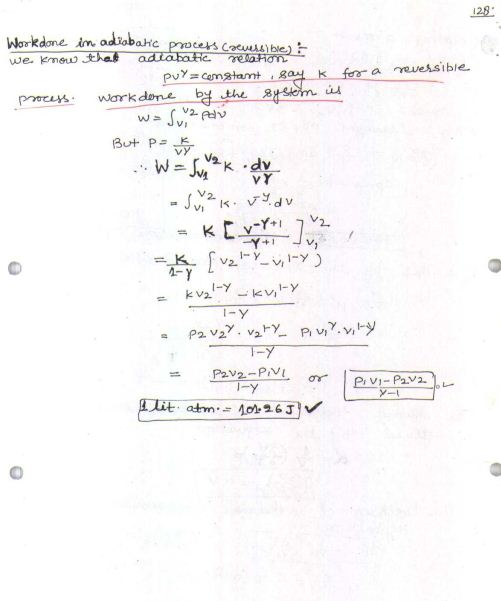 128.
Workdone in adiabatic process (reversible) :-
we know that adiabatic relation
PV^γ = constant, say K for a reversible
process. workdone by the system is
W = ∫_{V1}^{V2} Pdv
But P = K/V^γ
∴ W = ∫_{V1}^{V2} K · dv/V^γ
= ∫_{V1}^{V2} K · V^{-γ} · dv
= K [ V^{-γ+1}/(-γ+1) ]_{V1}^{V2}
= K/(1-γ) [ V2^{1-γ} - V1^{1-γ} )
= (KV2^{1-γ} - KV1^{1-γ})/(1-γ)
= (P2V2^γ · V2^{1-γ} - P1V1^γ · V1^{1-γ})/(1-γ)
= (P2V2 - P1V1)/(1-γ) or (P1V1 - P2V2)/(γ-1)
1 lit. atm. = 101.26 J ✓